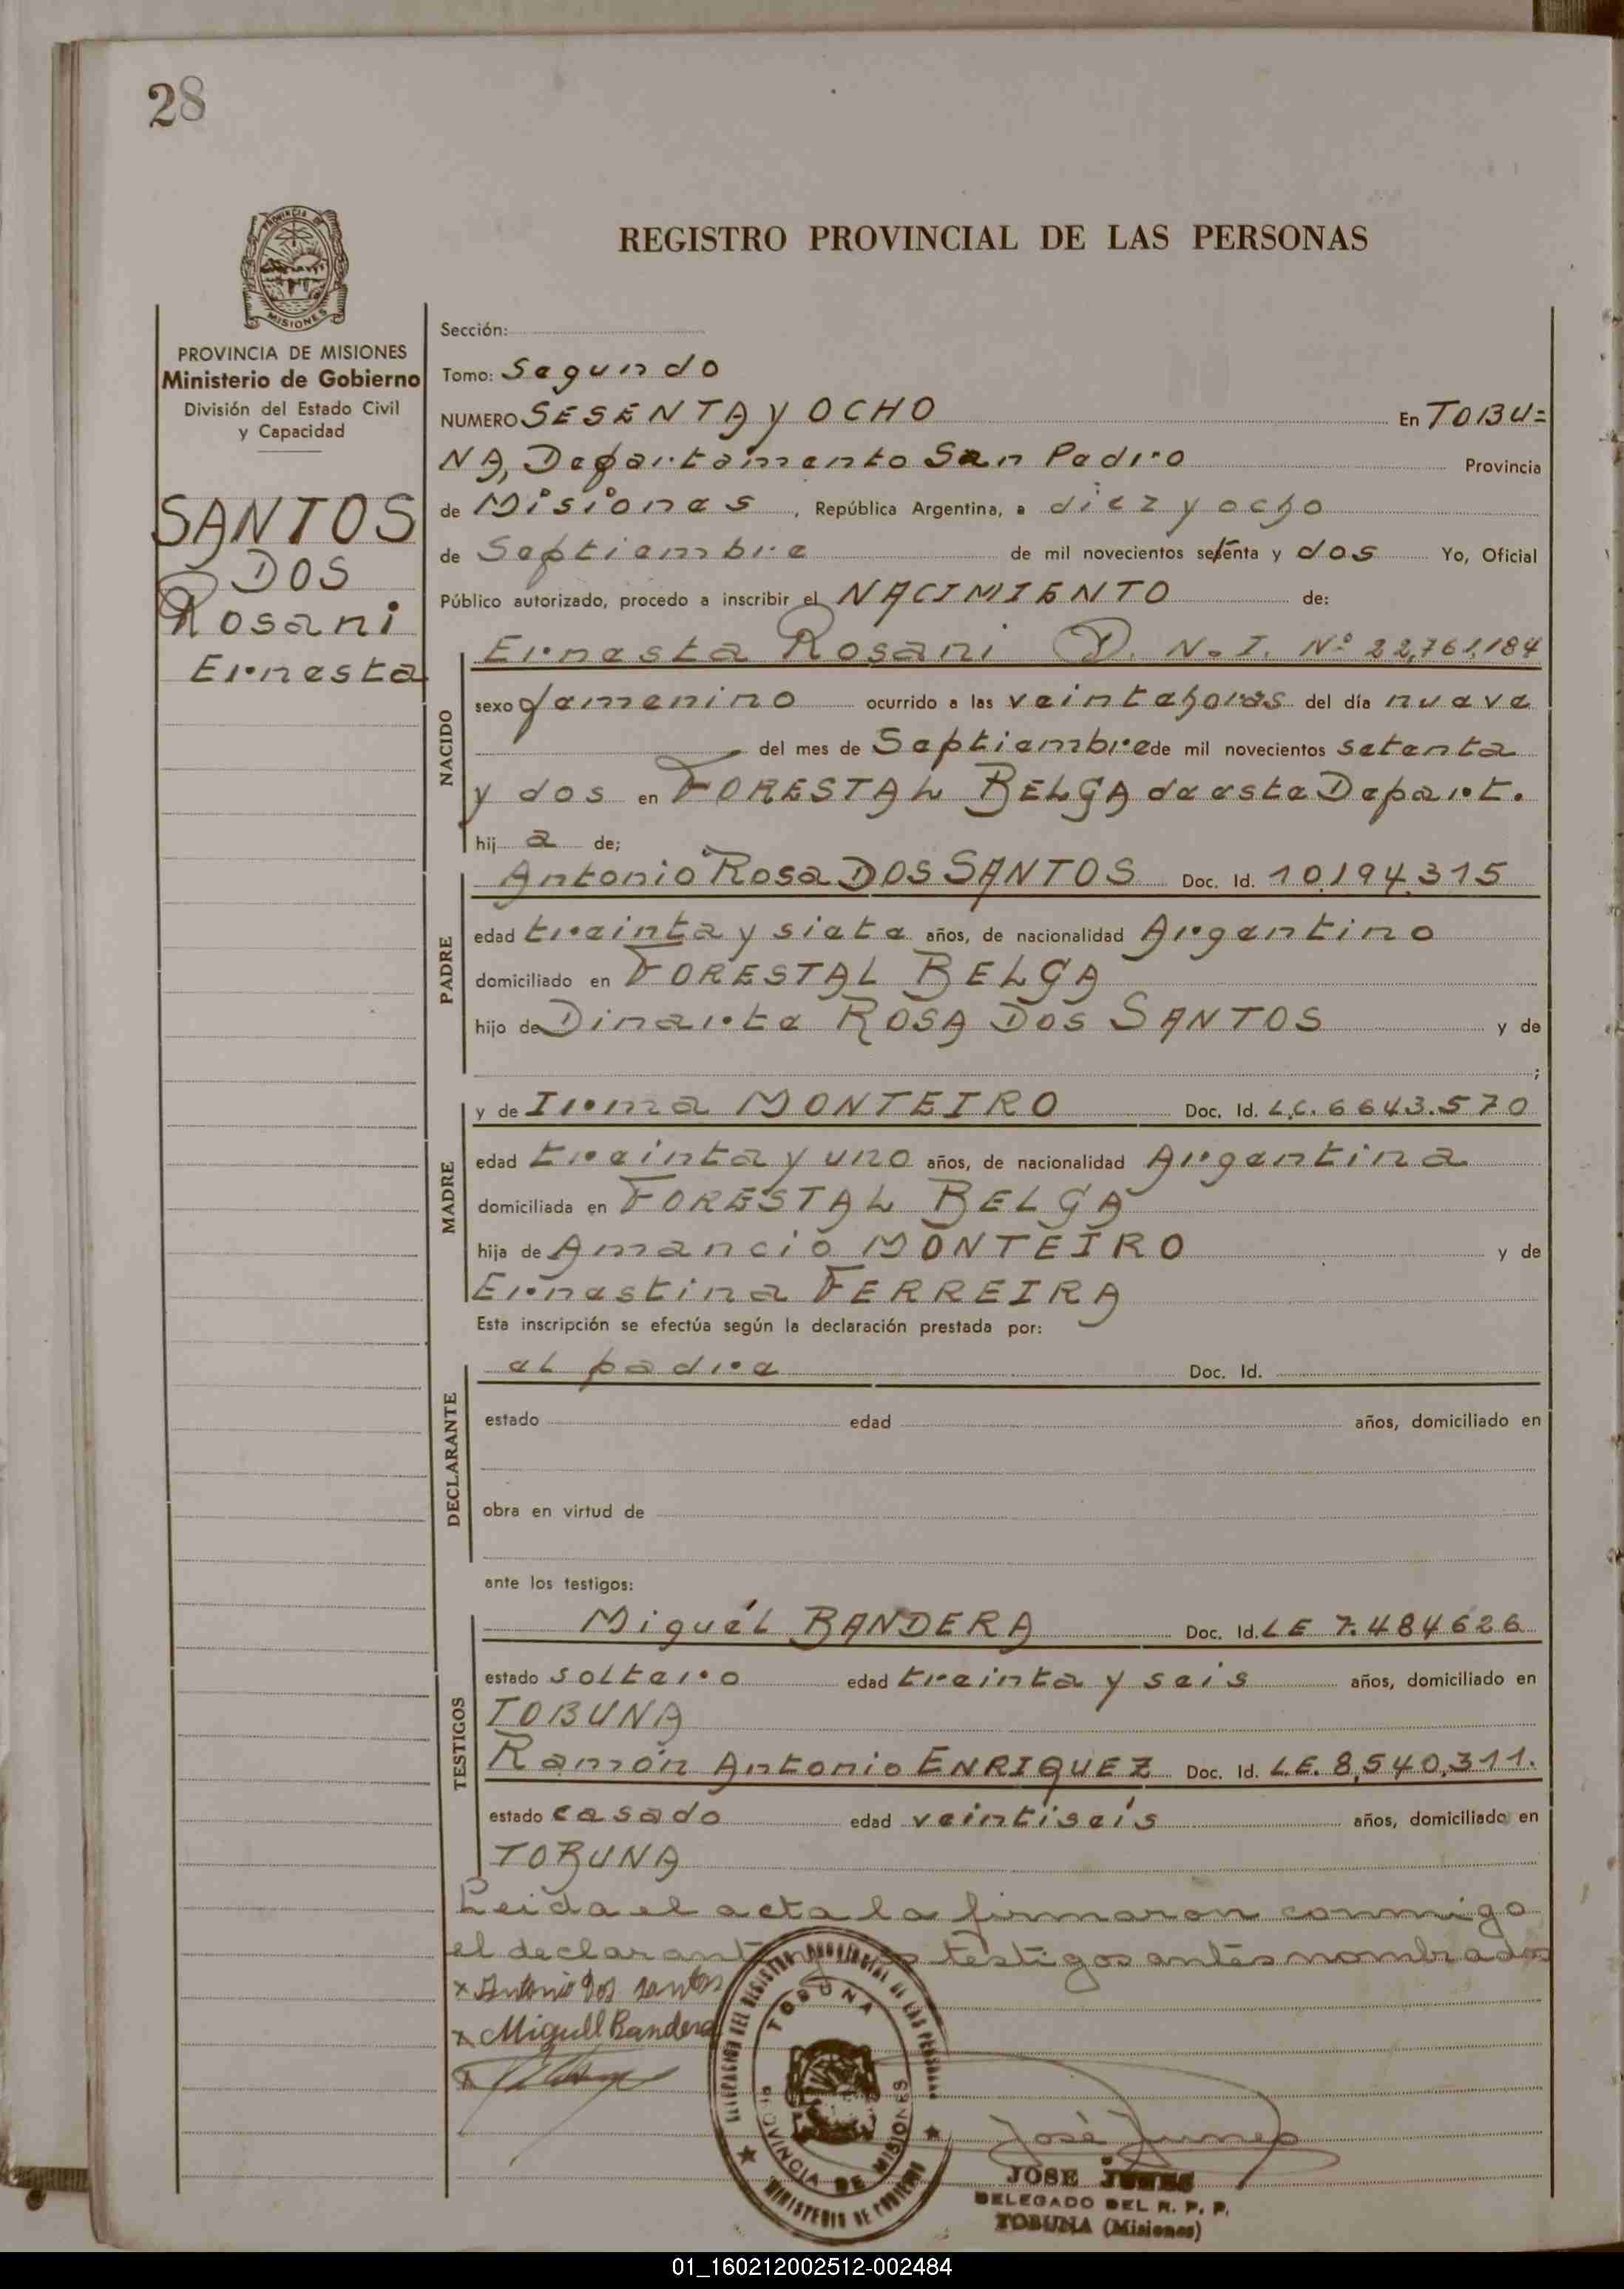 28
REGISTRO PROVINCIAL DE LAS PERSONAS
MISIONES
PROVINCIA DE MISIONES
Ministerio de Gobierno
División del Estado Civil
y Capacidad
SANTOS
DOS
Rosani
Ernesta
Sección:
Tomo: Segundo
NUMERO SESENTA y OCHO En TOBU=
NA, Departamento San Pedro Provincia
de Misiones, República Argentina, a diez y ocho
de Septiembre de mil novecientos setenta y dos Yo, Oficial
Público autorizado, procedo a inscribir el NACIMIENTO de:
NACIDO
Ernesta Rosani D. N. I. Nº 22,761,184
sexo femenino ocurrido a las veinte horas del día nueve
del mes de Septiembre de mil novecientos setenta
y dos en FORESTAL BELGA de este Depart.
hij a de;
PADRE
Antonio Rosa DOS SANTOS Doc. Id. 10.194.315
edad treinta y siete años, de nacionalidad Argentino
domiciliado en FORESTAL BELGA
hijo de Dinarte ROSA DOS SANTOS y de
;
MADRE
y de Irma MONTEIRO Doc. Id. L.C. 6643.570
edad treinta y uno años, de nacionalidad Argentina
domiciliada en FORESTAL BELGA
hija de Amancio MONTEIRO y de
Ernestina FERREIRA
Esta inscripción se efectúa según la declaración prestada por:
DECLARANTE
el padre Doc. Id.
estado edad años, domiciliado en
obra en virtud de
ante los testigos:
TESTIGOS
Miguél BANDERA Doc. Id. LE 7.484626
estado soltero edad treinta y seis años, domiciliado en
TOBUNA
Ramón Antonio ENRIQUEZ Doc. Id. L.E. 8,540,311.
estado casado edad veintiseis años, domiciliado en
TOBUNA
Leida el acta la firmaron conmigo
el declarant testigos antes nombrados
x Antonio Dos santos
x Miguell Bandera
x
DELEGACION DEL REGISTRO PROVINCIAL DE LAS PERSONAS
TOBUNA
PROVINCIA DE MISIONES
MINISTERIO DE GOBIERNO
José Junes
JOSE JUNES
DELEGADO DEL R. P. P.
TOBUNA (Misiones)
01_160212002512-002484